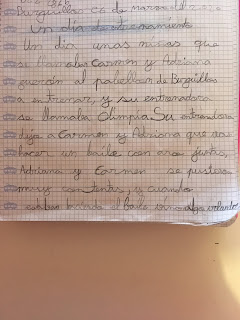 Burguillos 26 de marzo del 2020
Un día de etrenamiento
Un día unas niñas que
se llamaba Carmen y Adriana
fueron al pabellon de Burguillos
a entrenar, y su entrenadora
se llamaba Olimpia. Su entrenadora
dijo a Carmen y Adriana que
hacer un baile con aro juntas,
Adriana y Carmen se pusieron
muy contentas, y cuando
estaban bailando el baile vino algo volando